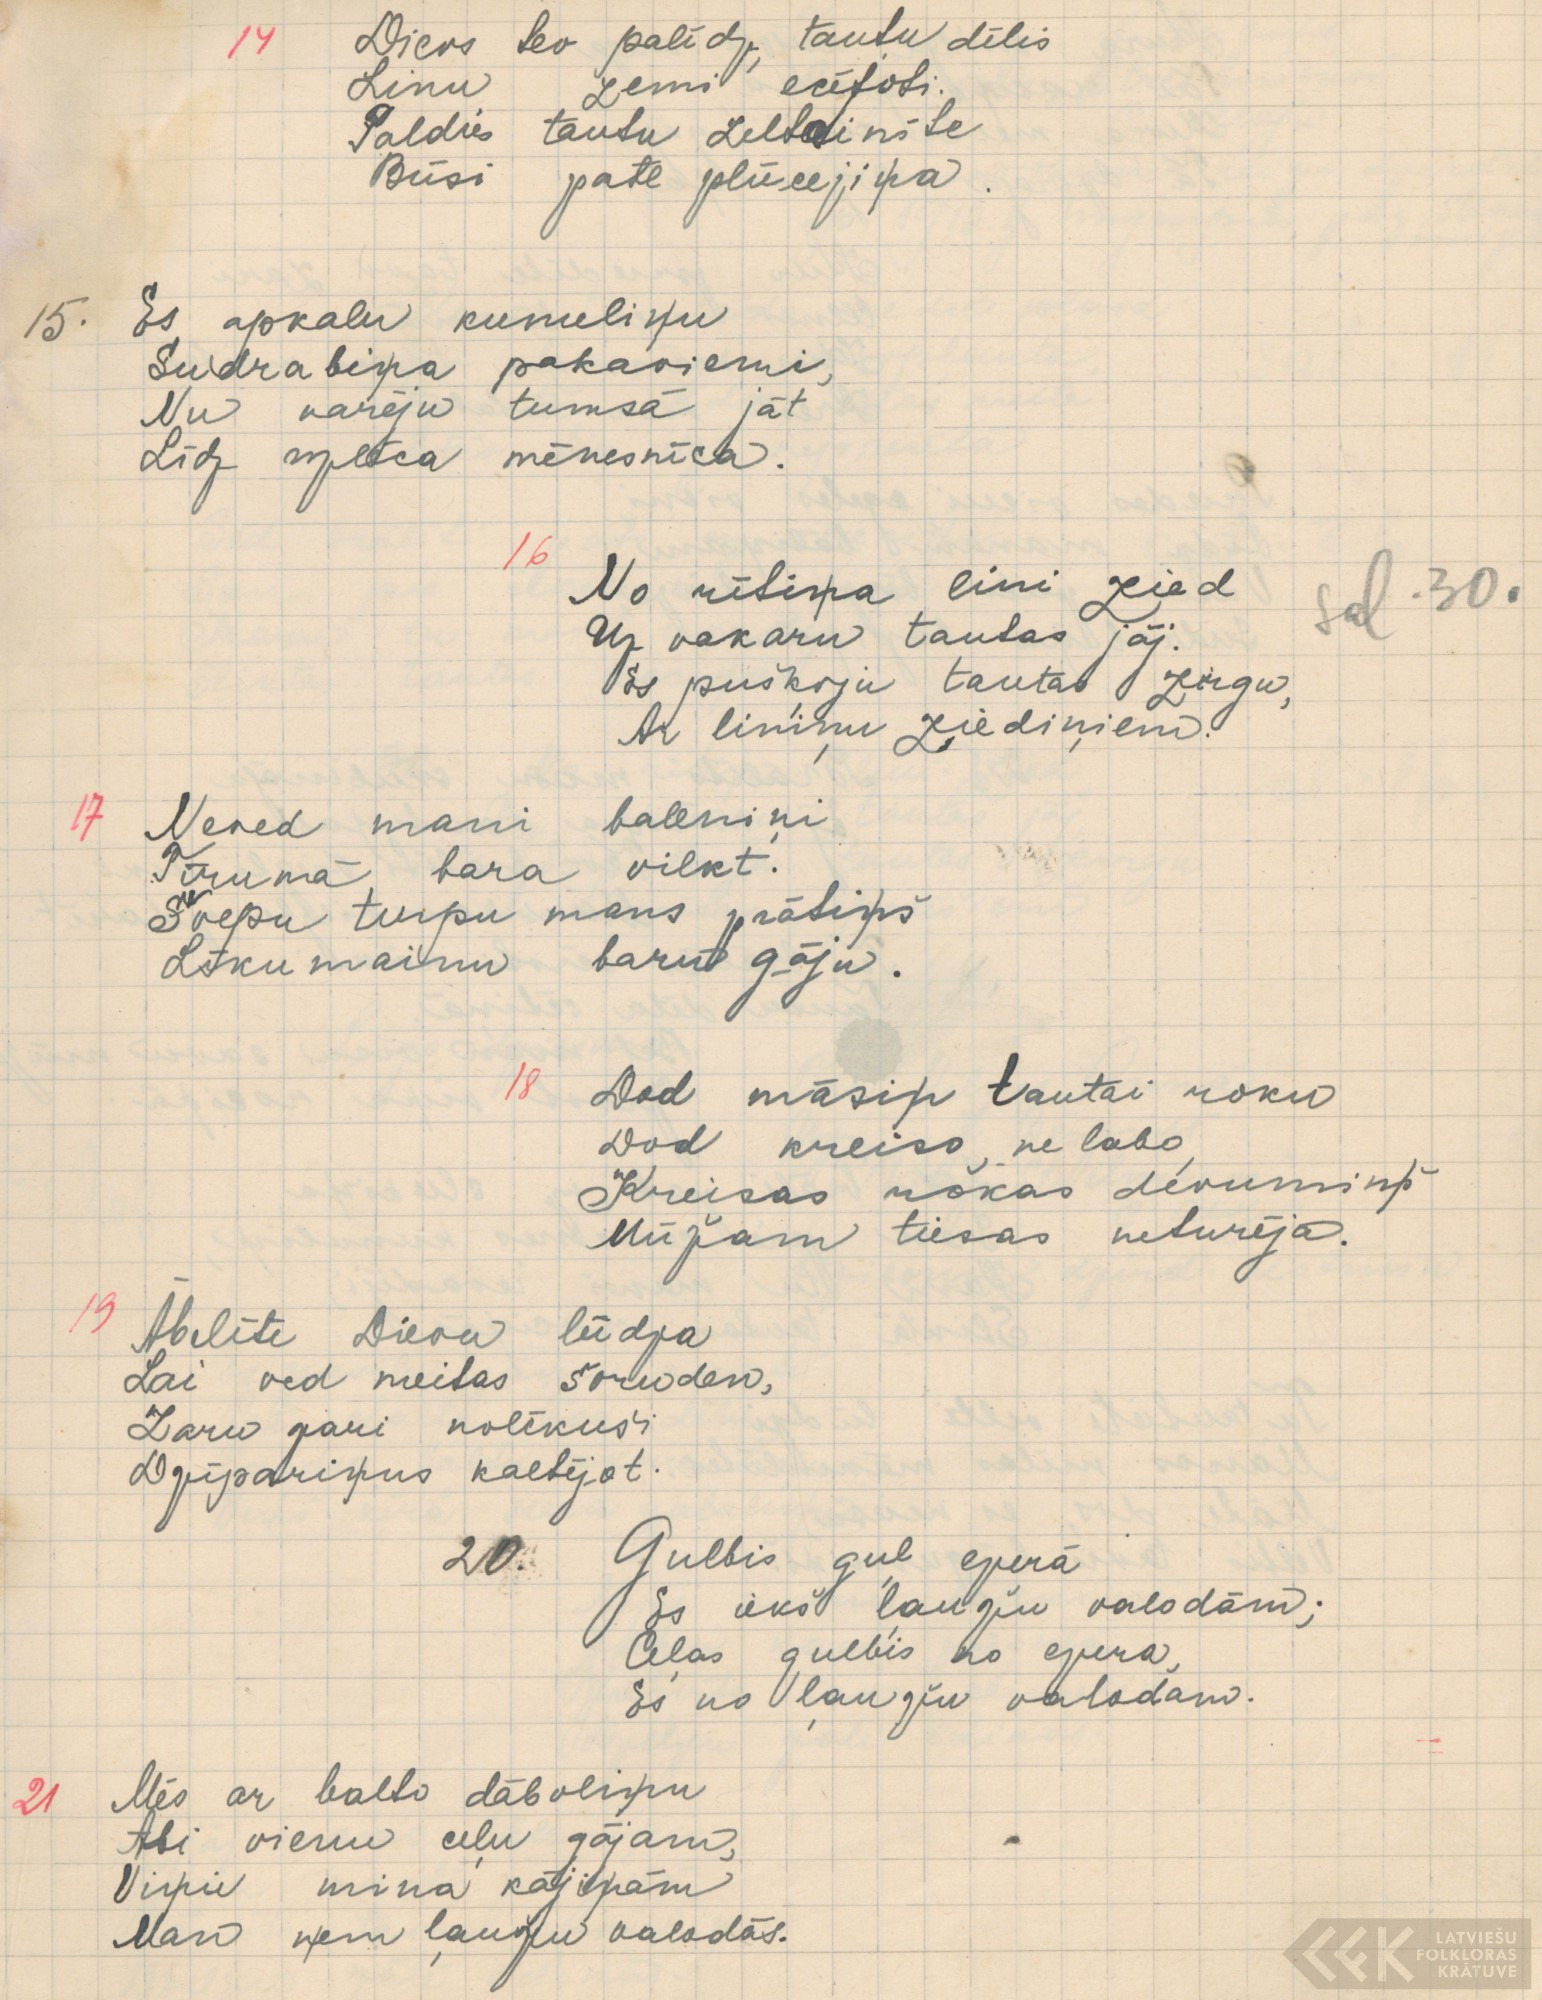 14
Dievs tev palīdz, tautu dēlis
Linu zemi ecējoti.
Paldies tautu zeltainīte
Būsi pate plūcējiņa.
15. Es apkalu kumeliņu
Sudrabiņa pakaviemi,
Nu varēju tumsā jāt
Līdz uzlēca mēnesnīca.
16
No rītiņa lini zied
Uz vakaru tautas jāj.
Es puškoju tautas zirgu,
Ar liniņu ziediņiem.
sal. 30.
17
Neved mani baleniņi
Tīrumā bara vilkt.
Šurpu turpu mans prātiņš
Līkumainu baru gāju.
18
Dod māsiņ tautai roku
Dod kreiso, ne labo,
Kreisas rokas devumiņš
Mūžam tiesas neturēja.
19
Ābelīte Dievu lūdza
Lai ved meitas šoruden,
Zaru gari nolīkuši
Dzīpariņus kaltējot.
20. Gulbis guļ ezerā
Es iekš ļaužu valodām;
Ceļas gulbis no ezera,
Es no ļaužu valodām.
21
Mēs ar balto dāboliņu
Abi vienu ceļu gājam,
Viņu mina kājiņām
Man ņem ļaužu valodās.
LATVIEŠU
FOLKLORAS
KRĀTUVE